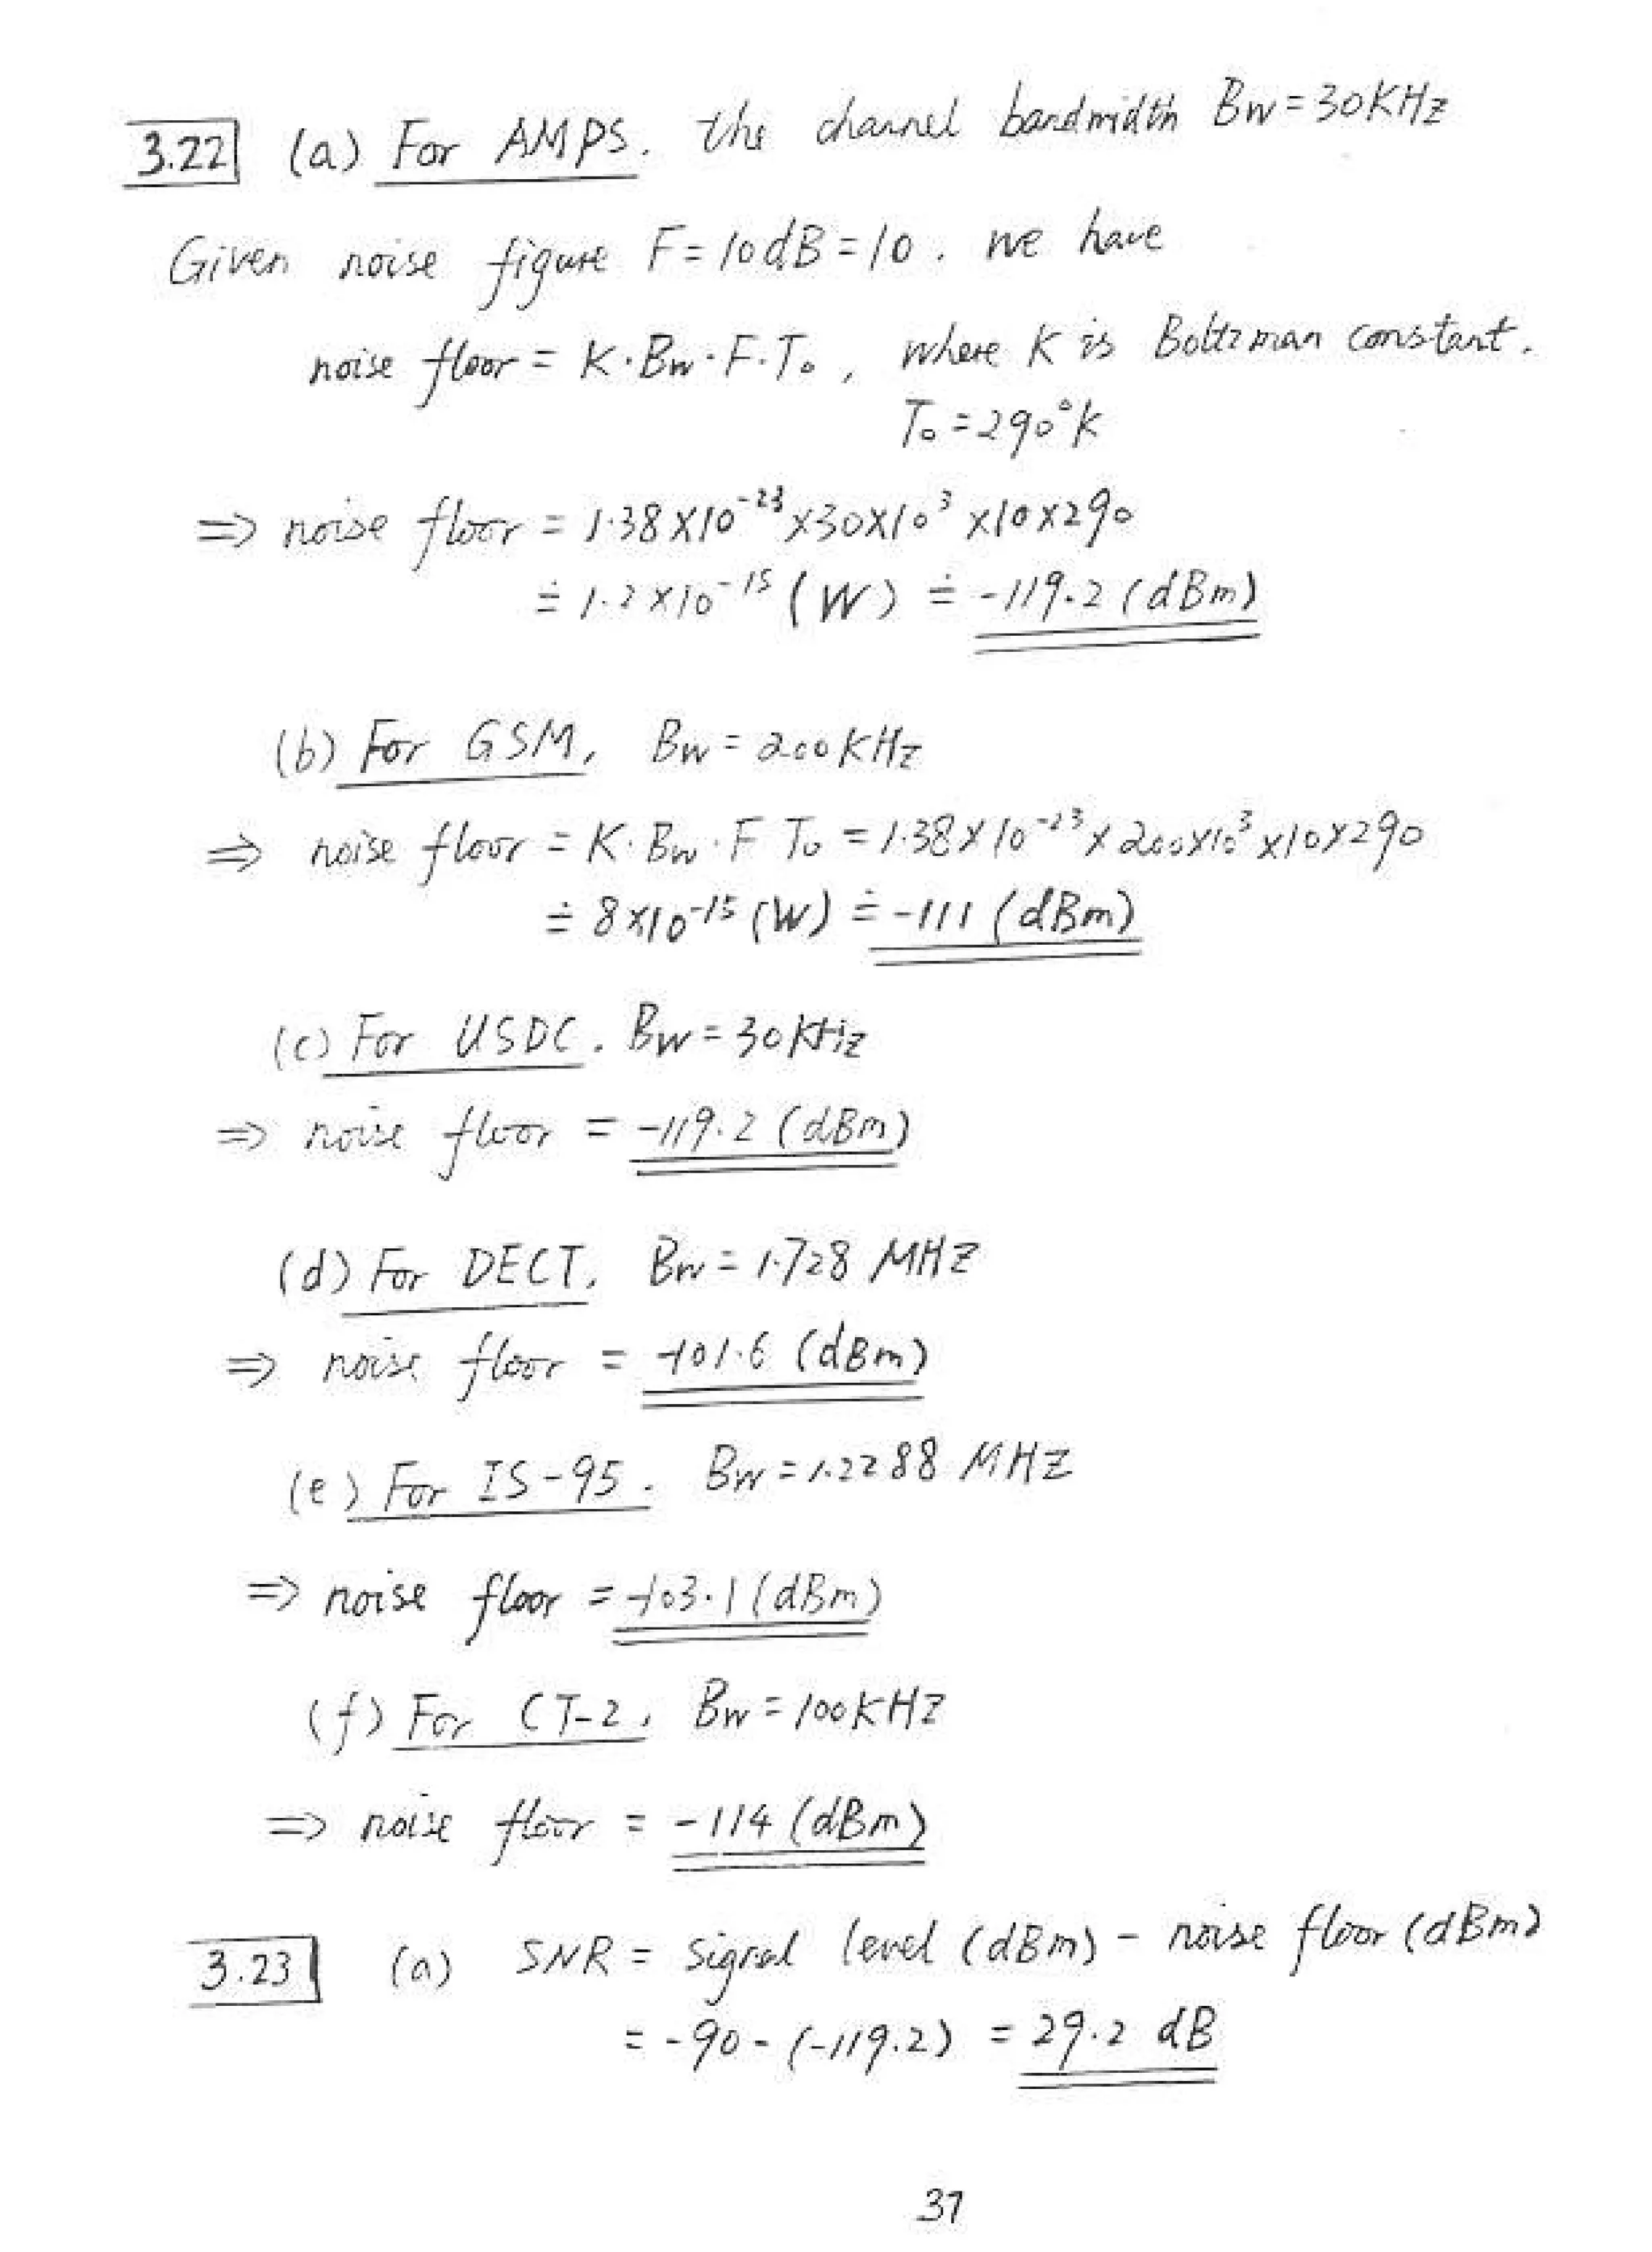 3.22 (a) For AMPS, the channel bandwidth Bw = 30KHz
Given noise figure F = 10dB = 10, we have
noise floor = K·Bw·F·T₀, where K is Boltzman constant.
T₀ = 290°K
⇒ noise floor = 1.38×10⁻²³×30×10³×10×290
≐ 1.2×10⁻¹⁵ (W) ≐ -119.2 (dBm)
(b) For GSM, Bw = 200KHz
⇒ noise floor = K·Bw·F T₀ = 1.38×10⁻²³×200×10³×10×290
≐ 8×10⁻¹⁵ (W) ≐ -111 (dBm)
(c) For USDC. Bw = 30KHz
⇒ noise floor = -119.2 (dBm)
(d) For DECT, Bw = 1.728 MHz
⇒ noise floor = -101.6 (dBm)
(e) For IS-95. Bw = 1.2288 MHz
⇒ noise floor = -103.1 (dBm)
(f) For CT-2, Bw = 100KHz
⇒ noise floor = -114 (dBm)
3.23 (a) SNR = signal level (dBm) - noise floor (dBm)
= -90 - (-119.2) = 29.2 dB
37